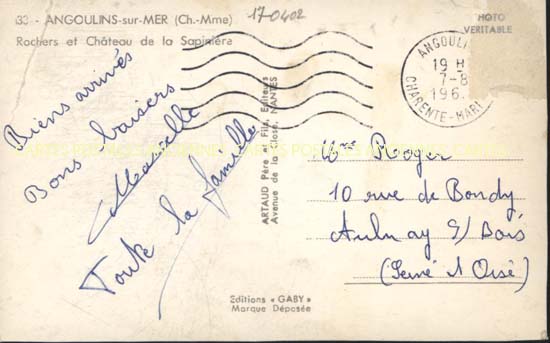 33 - ANGOULINS-sur-MER (Ch.-Mme)
Rochers et Château de la Sapinière
17-0402
PHOTO
VERITABLE
ANGOULI
19 H
7-8
196
CHARENTE-MARI
Biens arrivés
Bons baisers
Marcelle
Toute la famille
ARTAUD Père et Fils, Editeurs
Avenue de la Close, NANTES
Mme Roger
10 rue de Bondy
Aulnay S/ Bois
(Seine et Oise)
Editions « GABY »
Marque Déposée